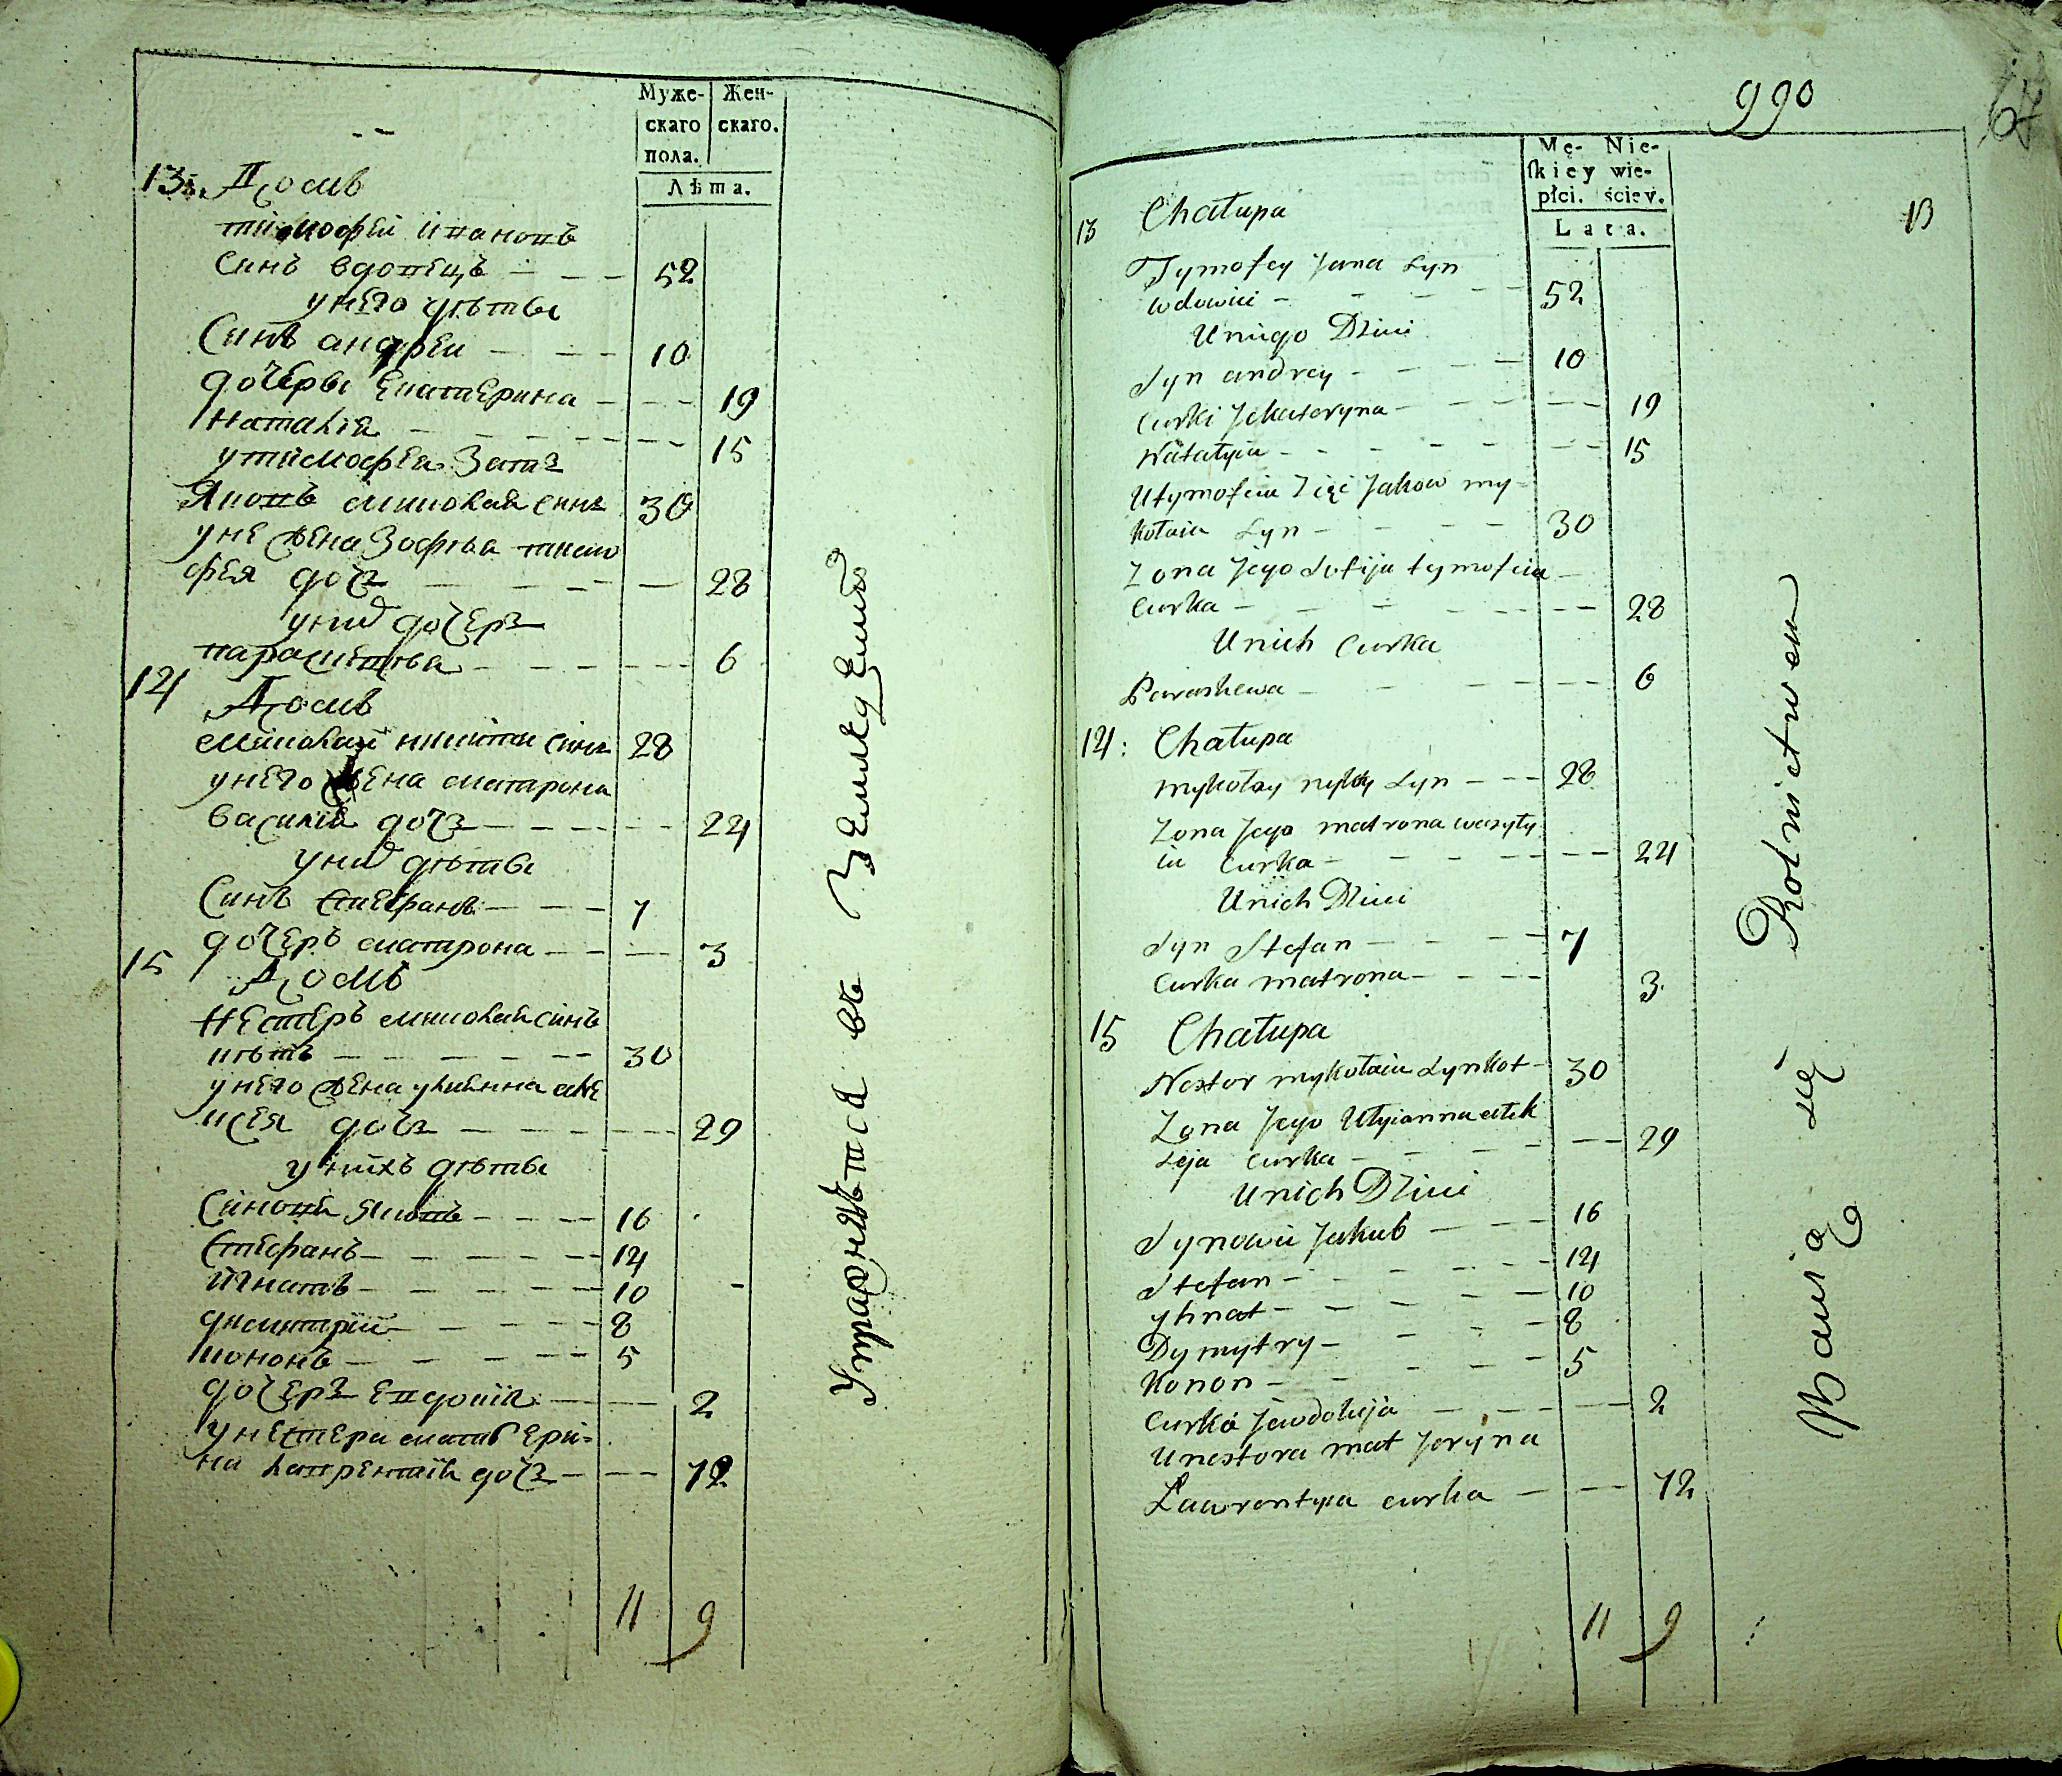 Муже- Жен-
скаго скаго.
пола.
Лѣта.
13. Домъ
тимофей ивановъ
синъ вдовецъ - - - 52
у него дѣтьи
Синъ андреи - - - 10
дочеры екатерина - - - 19
наталія - - - - - 15
у тимофея зать
Яковъ миколая синъ 30
у не жена Зофѣа тимо
фея дочь - - - - 28
у них дочерь
парасковѣа - - - - 6
14 Домъ
миколай никити синъ 28
у него жена матрона
василія дочь - - - - 24
у них дѣтьи
Синъ стефанъ - - - 7
дочеръ матрона - - - 3
15 Домъ
Нестеръ миколая синъ
котъ - - - - - 30
у него жена улиянна але
ксея дочь - - - - 29
у нихъ дѣтьи
Синови яковъ - - - 16
Стефанъ - - - - 14
игнатъ - - - - 10
дмитрій - - - - 8
кононъ - - - - 5
дочерь евдокія - - - 2
у нестера мать ери-
на лаврентія дочь - - - 72
11 9
Упражняѣтся въ Земледеліи
990
67
Mę- Nie-
skiey wie-
płci. ściey.
Lata.
13
13 Chałupa
Tymofey Jana Syn
wdowiec - - - - 52
Uniego Dzieci
Syn andrey - - - - 10
Curki Jekateryna - - - - 19
Natałyia - - - - - 15
U tymofeia Zięć Jakow my-
kołaia Syn - - - - 30
Zona Jego Sofija tymofeia
curka - - - - - 28
Unich Curka
Paraskewa - - - - - 6
14: Chałupa
mykołay nykity Syn - - - 28
Zona Jego matrona wasyły
ia Curka - - - - - 24
Unich Dzieci
Syn Stefan - - - - 7
Curka matrona - - - - 3
15 Chałupa
Nestor mykołaia Syn kot - 30
Zona Jego Ulyianna alek
seja curka - - - - - 29
Unich Dzieci
Synowie Jakub - - - 16
Stefan - - - - - 14
yhnat - - - - - 10
Dymytry - - - - 8
Konon - - - - - 5
Curka Jewdokija - - - - 2
U nestora mat Jeryna
Lawrentyia curka - - - 72
11 9
Bawią się Rolnictwem